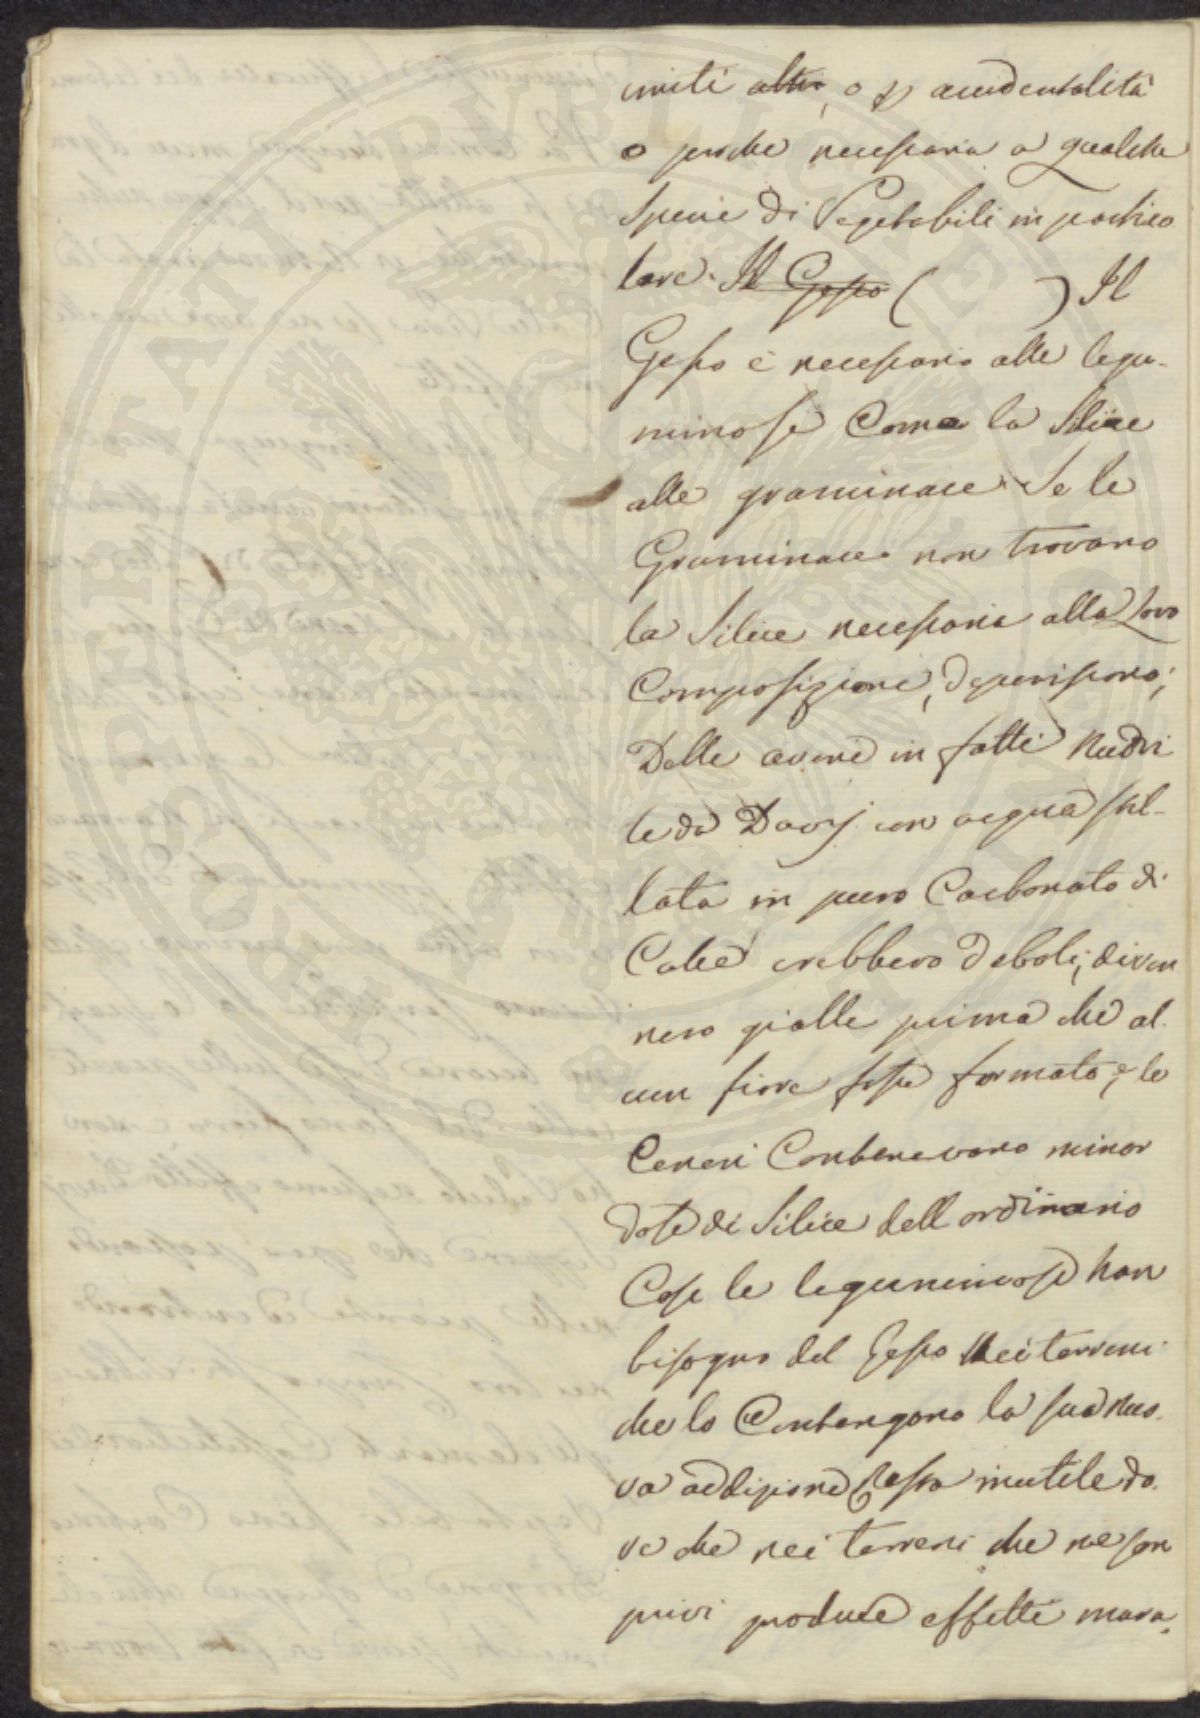 uniti altri, o p accidentalità
o perche necessaria a qualche
Specie di Vegetabili in partico
lare. Il Gesso ( ) Il
Gesso è necessario alle legu-
minose Come la Silice
alle graminace. Se le
Graminace non trovano
la Silice necessaria alla loro
Composizione, deperiscono;
Delle avene in fatti nudri
te da Davy con acqua stil-
lata in puro Carbonato di
Calce crebbero deboli, diven
nero gialle prima che al
cun fiore fosse formato, e le
Ceneri Contenevano minor
dose di Silice dell ordinario
Cosi le leguminose han
bisogno del Gesso Nei terreni
che lo Contengono la sua nuo
va addizione resta inutile do
ve che nei terreni che ne son
privi produce effetti mara
PROSPERITATI PVBLICAE AVGENDAE